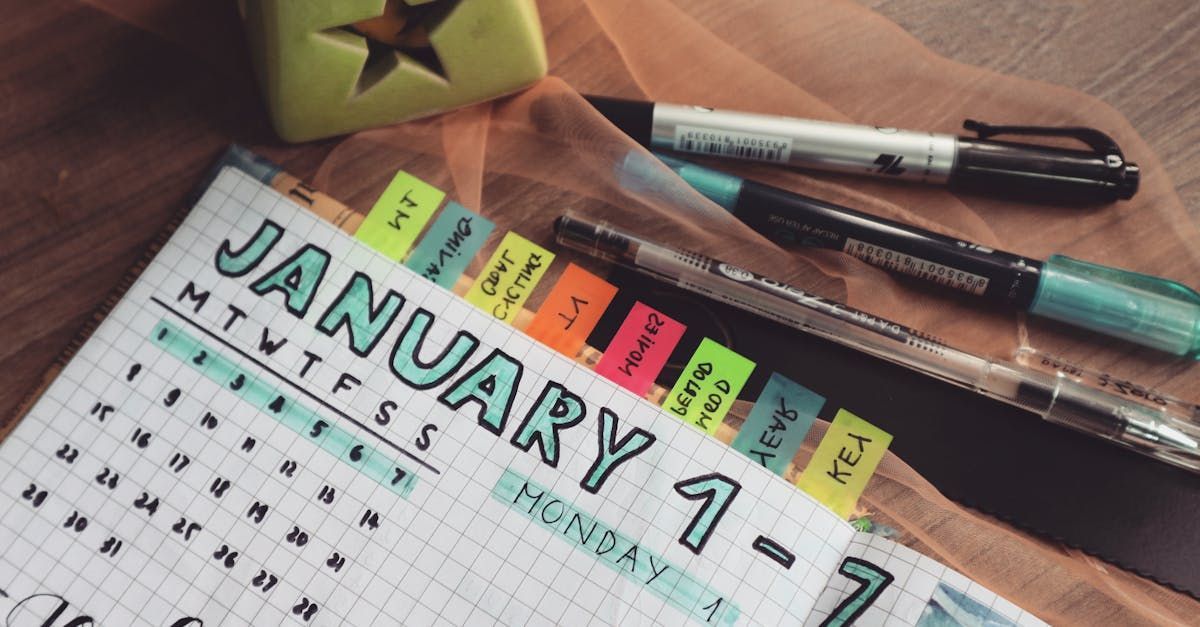 JANUARY 1 - 7
M T W T F S S
1 2 3 4 5 6 7
8 9 10 11 12 13 14
15 16 17 18 19 20 21
22 23 24 25 26 27 28
29 30 31
MONDAY 1
GOAL
CYCLING
YT
MOVIES
PERIOD
MOOD
YEAR
KEY
8935001810339
RECAP AFTER USE
8935001810308